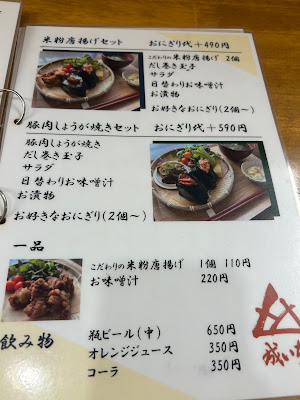 米粉唐揚げセット おにぎり代+490円
こだわりの米粉唐揚げ 2個
だし巻き玉子
サラダ
日替わりお味噌汁
お漬物
お好きなおにぎり(2個〜)
豚肉しょうが焼きセット おにぎり代+590円
豚肉しょうが焼き
だし巻き玉子
サラダ
日替わりお味噌汁
お漬物
お好きなおにぎり(2個〜)
一品
こだわりの米粉唐揚げ 1個 110円
お味噌汁 220円
飲み物
瓶ビール(中) 650円
オレンジジュース 350円
コーラ 350円